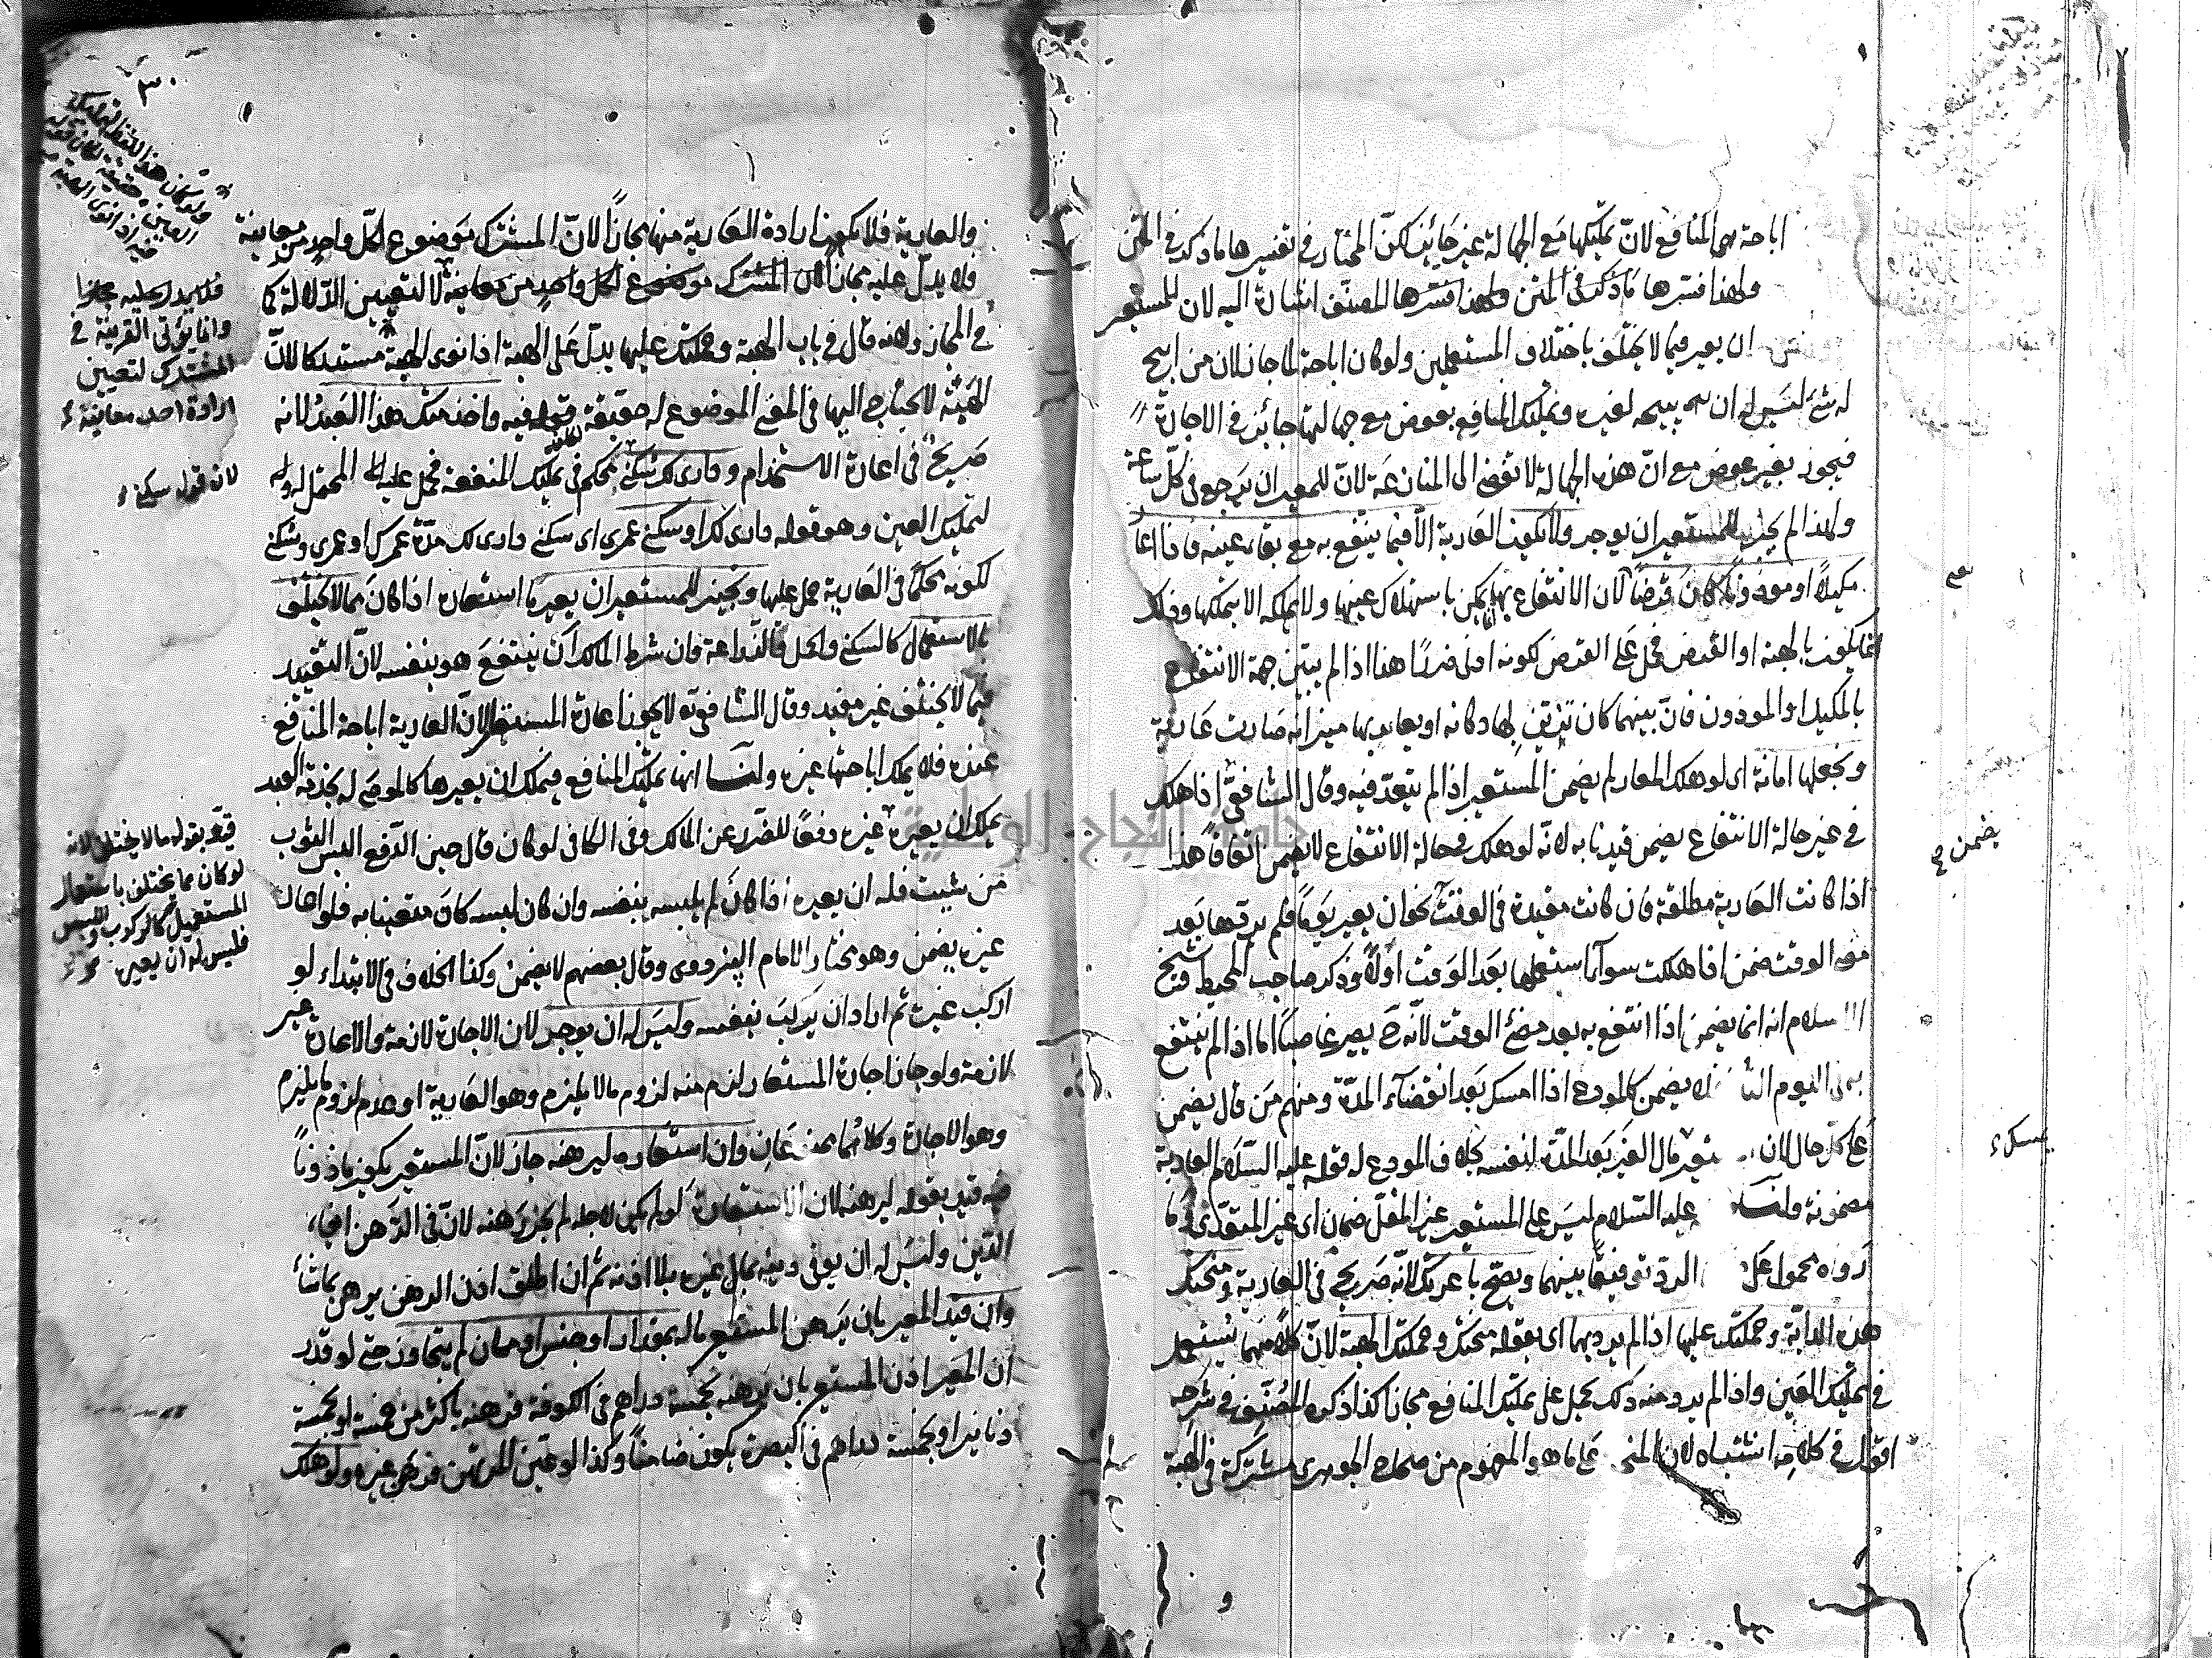 اباحة المنافع لان تمليكها مع الجهالة غير جائز لكن المختار في تفسيرها ما ذكر في المتن
ولهذا فسرها المصنف اشارة اليه لان للمستعير
ان يعير فيما لا يختلف باختلاف المستعملين ولو كان اباحة لما جاز لان من ابيح
له شئ ليس له ان يبيحه لغيره وتمليك المنافع بعوض مع جهالتها جائز في الاجارة
فيجوز بغير عوض مع ان هذه الجهالة لا تفضى الى المنازعة لان للمعير ان يرجع في كل ساعة
ولهذا لم يجز للمستعير ان يوجر ولا تكون العارية الا فيما ينتفع به مع بقاء عينه فاذا اعار
مكيلا او موزونا كان قرضا لان الانتفاع بها يمكن باستهلاك عينها ولا يملكه الا بتملكها وذلك
انما يكون بالهبة او القرض فحمل على القرض لكونه ادنى ضررا هذا اذا لم يبين جهة الانتفاع
بالمكيل او الموزون فان بينهما كان تزين بها دكانه او يعاير بها ميزانه صارت عارية
ونجعلها امانة اى لو هلك المعار لم يضمن المستعير اذا لم يتعد فيه وقال الشافعى اذا هلك
في غير حالة الانتفاع يضمن قيدنا به لانه لو هلك في حالة الانتفاع لا يضمن اتفاقا هذا
اذا كانت العارية مطلقة فان كانت مقيدة في الوقت نحو ان يعير يوما فلم يردها بعد
مضى الوقت ضمن اذا هلكت سواء استعملها بعد الوقت اولا وذكر صاحب المحيط وشيخ
الاسلام انه انما يضمن اذا انتفع به بعد مضى الوقت لانه ح يصير غاصبا اما اذا لم ينتفع
به في اليوم الثا لا يضمن كالمودع اذا امسك بعد انقضاء المدة ومنهم من قال يضمن
على كل حال لان مال الغير بعد المدة لنفسه بخلاف المودع له قوله عليه السلام العارية
مضمونة ولنا عليه السلام ليس على المستعير غير المغل ضمان اى غير المتعدى وما
رواه محمول على الرد توفيقا بينهما ويصح باعرتك لانه صريح في العارية ومنحتك
هذه الدابة وحملتك عليها اذا لم يرد بهما اى بقوله منحتك وحملتك الهبة لان كلا منهما يستعمل
في تمليك العين واذا لم يرد منه ذلك يحمل على تمليك المنافع مجازا كذا ذكره المصنف في شرحه
اقول في كلامه اشتباه لان المنح على ما هو المفهوم من صحاح الجوهرى مشتركة في الهبة
يضمن ح
يمسك
والعارية فلا يكون ارادة العارية منها مجازا لان المشترك موضوع لكل واحد من معانيه
ولا يدل عليه مجازا لان المشترك موضوع لكل واحد من معانيه لا لتعيين الدلالة كما
في المجاز ولهذا قال في باب الهبة وحملتك عليها يدل على الهبة اذا نوى الهبة مستدركا لان
الهيئة لا يحتاج اليها في المعنى الموضوع له حقيقة قوله فيه واخدمتك هذا العبد لانه
صريح في اعارة الاستخدام ودارى لك سكنى محكم في تمليك المنفعة فحمل عليه المحتمل له
لتمليك العين وهو قوله دارى لك او سكنى عمرى اى سكنى دارى لك مدة عمرك او عمرى وسكنى
لكونه محكما في العارية حمل عليها ونجيز للمستعير ان يعير ما استعاره اذا كان مما لا يختلف
بالاستعمال كالسكنى والحمل والزراعة وان شرط المالك ان ينتفع هو بنفسه لان التقييد
فيما لا يختلف غير مفيد وقال الشافعى لا يجوز اعارة المستعار لان العارية اباحة المنافع
عنده فلا يملك اباحتها غيره ولنا انها تمليك المنافع فيملك ان يعيرها كالموصى له بخدمة العبد
يملك ان يعيره غيره دفعا للضرر عن المالك وفى الكافى لو كان قال حين الدفع البس الثوب
من شئت فله ان يعيره اذا كان لم يلبسه بنفسه وان كان لبسه كان متعينا به فلو اعار
غيره يضمن وهو مختار الامام البزدوى وقال بعضهم لا يضمن وكذا الخلاف في الابتداء لو
اركب غيره ثم اراد ان يركب بنفسه وليس له ان يوجر لان الاجارة لازمة والاعارة غير
لازمة ولو جاز اجارة المستعار لزم منه لزوم ما لا يلزم وهو العارية او عدم لزوم ما يلزم
وهو الاجارة وكلاهما ممتنعان وان استعاره ليرهنه جاز لان المستعير يكون ماذونا
فيه قيد بقوله ليرهنه لان الاستعارة لو لم يكن لاجله لم يجز رهنه لان في الرهن ايفاء
الدين وليس له ان يوفى دينه بمال غيره بلا اذنه ثم ان اطلق اذن الرهن يرهن بما شاء
وان قيد المعير بان يرهن المستعير ماله بمقدار او جنس او مكان لم يتجاوز حتى لو قدر
ان المعير اذن المستعير بان يرهنه بخمسة دراهم في الكوفة فرهنه باكثر من خمسة او بخمسة
دنانير او بخمسة دراهم في البصرة يكون ضامنا وكذا لو عين المرتهن فرهن غيره ولو هلك
٣٠
فلا يدل عليه مجازا
وانما يؤتى القرينة في
المشترك لتعيين
ارادة احد معانيه
لان قوله سكنى
قيد بقوله مما لا يختلف لانه
لو كان مما يختلف باستعمال
المستعمل كالركوب واللبس
فليس له ان يعيره